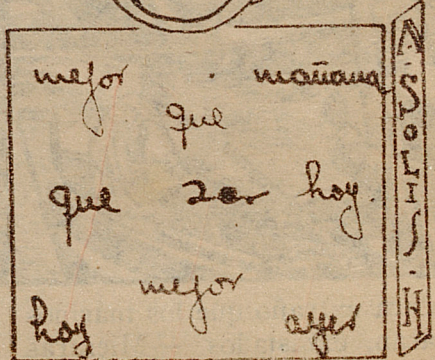 mejor mañana
que
que ser hoy.
mejor
hoy ayer
A·SOLIS·H